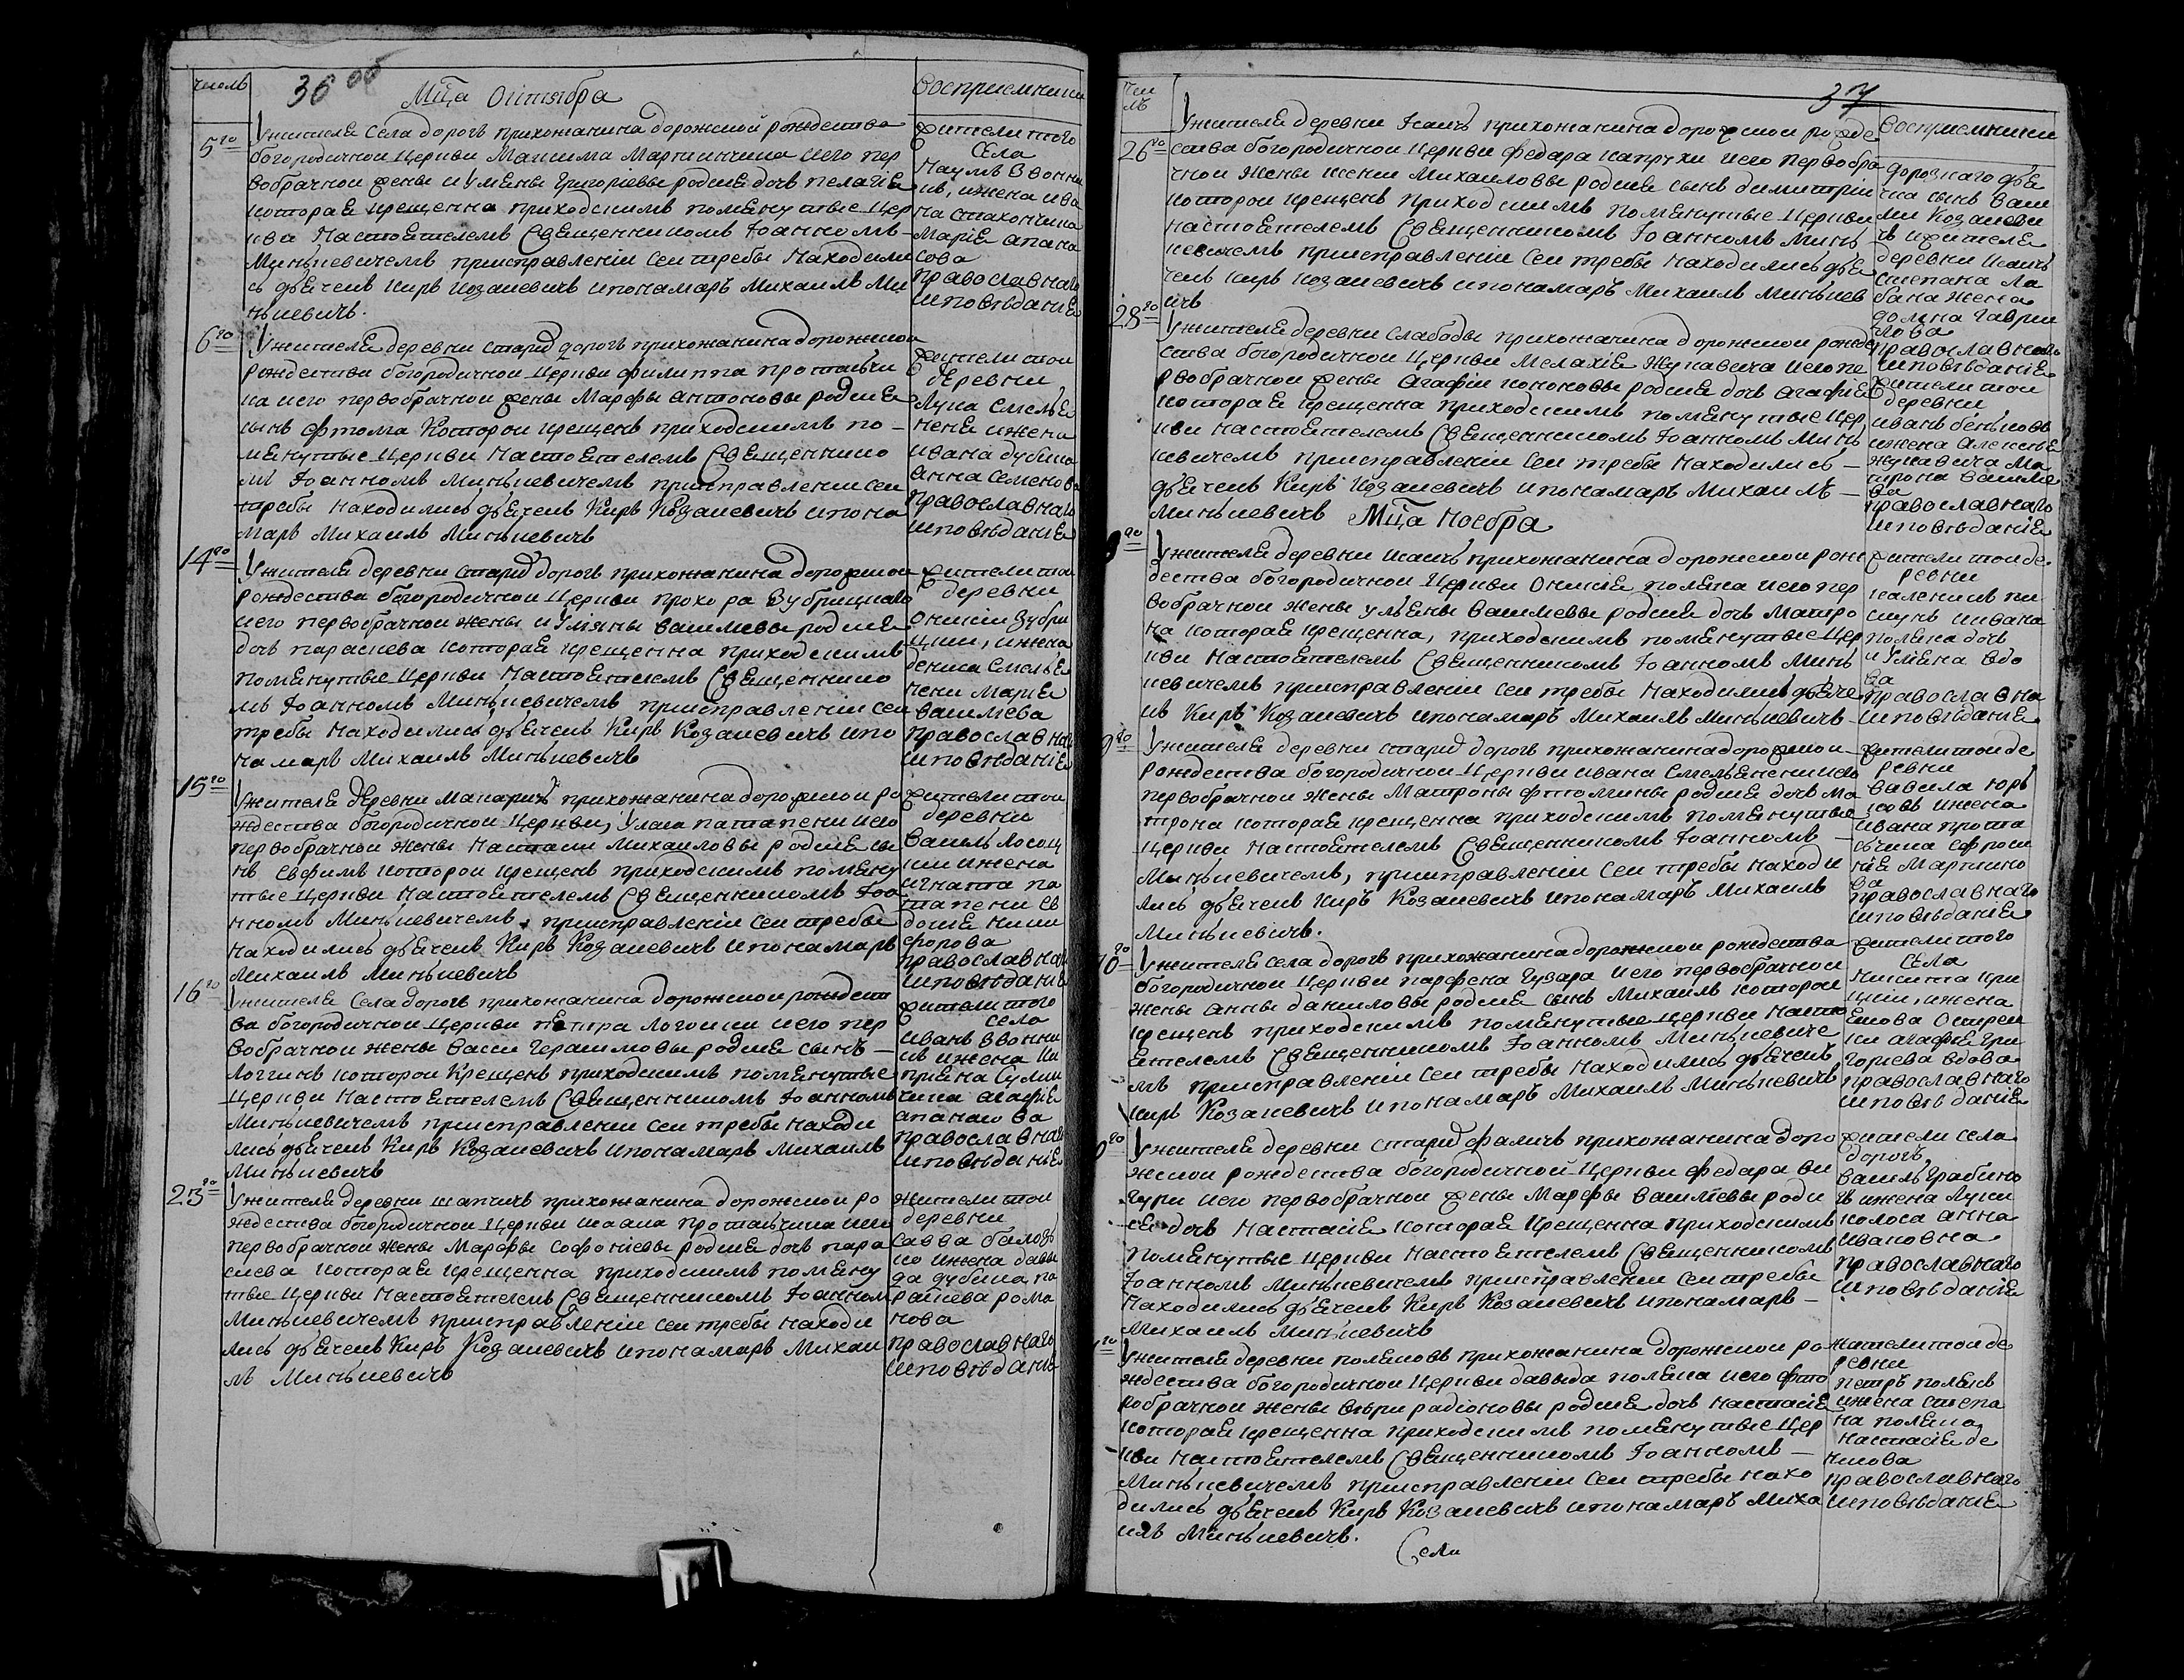 числъ
36 об
Мца Октября
Восприемники
5го
У жителя села дорогъ прихожанина дорожской рождества
богородичной Церкви Максима Мартинчика и его пер
вобрачной жены Иулiяны Григорiевы родися дочь пелагiя
которая крещенна приходскимъ помянутыя Цер
кви Настоятелемъ Священникомъ Iоанномъ
Минкѣевичемъ приисправленiи сеи требы Находили
сь дьячекъ Киръ Козакевичъ ипонамаръ Михаилъ Ми
нкевичъ.
жители того
села
Наумъ
ижена ива
на
Марiя апана
сова
православнаго
исповѣданiя
6го
У жителя деревни старид дорогъ прихожанина дорожской
рождества богородичной Церкви филиппа протасчи
ка иего первобрачной жены Марфы антоновы родися
сынъ фтома Которои крещенъ приходскимъ по
мянутые Церкви Настоятелемъ Священнико
мъ Iоанномъ Минкевичемъ приисправленiи сеи
требы находились дьячекъ Киръ Козакевичъ ипона
маръ Михаилъ Минкевичъ
жители тои
деревни
Лука Емелья
неня ижена
ивана дубика
анна Семенова
православнаго
исповѣданiя
14го
У жителя деревни старид дорогъ прихожанина дорожской
рождества богородичной Церкви прохора Зубрицкаго
иего первобрачной жены иУляны василевы родися
дочь параскева которая крещенна приходскимъ
помянутые Церкви Настоятелемъ Священнико
мъ Iоанномъ Минкевичемъ приисправленiи сеи
требы находились дьячекъ Киръ Козакевичъ ипо
намаръ Михаилъ Минкевичъ
жители тои
деревни
Онисiи Зубри
цки, ижена
дениса Емелья
нени Марiя
василева
православнаго
исповѣданiя
15го
У жителя деревни Макаричъ прихожанина дорожской ро
ждества богородичной Церкви, Уласа патапени иего
первобрачной жены Настаси Михаиловы родися сы
нъ Евфимъ которои крещенъ приходскимъ помяну
тые Церкви Настоятелемъ Священникомъ Iоа
нномъ Минкевичемъ, приисправленiи сеи требы
находились дьячекъ Киръ Козакевичъ ипонамаръ
Михаилъ Минкевичъ
жители тои
деревни
Василь
ижена
игната па
тапени Ев
докiя ники
форова
православнаго
исповѣданiя
16го
У жителя села дорогъ прихожанина дорожской рождест
ва богородичной Церкви петра Логоики иего пер
вобрачной жены Васи Герасимовы родися сынъ
Логгинъ которои Крещенъ приходскимъ помянутые
Церкви Настоятелемъ Священникомъ Iоанномъ
Минкевичемъ приисправленiи сеи требы находи
лись дьячекъ Киръ Козакевичъ ипонамаръ Михаилъ
Минкевичъ
жители того
села
иванъ
ижена Ки
прiяна
агафiя
апанасова
православнаго
исповѣданiя
23го
У жителя деревни шапчичъ прихожанина дорожской ро
ждества богородичной Церкви исаака протасчика иего
первобрачной жены Марфы Софонiевы родися дочь пара
скева которая крещенна приходскимъ помяну
тые Церкви Настоятелемъ Священникомъ Iоанномъ
Минкевичемъ приисправленiи сеи требы находи
лись дьячекъ Киръ Козакевичъ ипонамаръ Михаи
лъ Минкевичъ
жители тои
деревни
савва
ижена давы
да дубика па
раскева рома
нова
православнаго
исповѣданiя
Чи
лъ
37
Восприемники
26го
У жителя деревни Iсаичъ прихожанина дорожской рожде
ства богородичной Церкви федара капрухи иего первобра
чной жены ксени Михаиловы родися сынъ димитрiи
которои крещенъ приходскимъ помянутые Церкви
настоятелемъ Священникомъ Iоанномъ Минь
кевичемъ приисправленiи сеи требы находились дья
чекъ Киръ Козакевичъ ипонамаръ Михаилъ Минкев
ичъ
дорожнаго дья
чка сынъ Васи
ли Козакеви
чъ ижителя
деревни исаичъ
степана ла
бана жена
домна гаври
лова
православнаго
исповѣданiя
28го
У жителя деревни слабоды прихожанина дорожской рожде
ства богородичной Церкви Мелахiя Жукавича иего пе
рвобрачной жены Агафiи кононовы родися дочь агафiя
которая крещенна приходскимъ помянутые Цер
кви настоятелемъ Священникомъ Iоанномъ Минь
кевичемъ приисправленiи сеи требы находились
дьячекъ Киръ Козакевичъ ипонамаръ Михаилъ
Минкевичъ
жители тои
деревни
иванъ беньковъ
ижена алексея
жукавича Ма
трона василе
ва
православнаго
исповѣданiя
Мца Ноебра
У жителя деревни исаичъ прихожанина дорожской рож
дества богородичной Церкви Онисiя поляка иего пер
вобрачной жены ульяны василевы родися дочь Матро
на которая крещенна, приходскимъ помянутые Цер
кви Настоятелемъ Священникомъ Iоанномъ Минь
кевичемъ приисправленiи сеи требы находились дьяче
къ Киръ Козакевичъ ипонамаръ Михаилъ Минкевичъ
жители тои де
ревни
каленикъ пи
скунъ иивана
поляка дочь
иУляна вдо
ва
православна
исповѣданiя
9го
У жителя деревни старид дорогъ прихожанина дорожской
рождества богородичной Церкви ивана Емельянени иего
первобрачной жены Матроны фтомины родися дочь Ма
трона которая крещенна приходскимъ помянутые
Церкви Настоятелемъ Священникомъ Iоанномъ
Минкевичемъ, приисправленiи сеи требы находи
лись дьячекъ Киръ Козакевичъ ипонамаръ Михаилъ
Минкевичъ.
жители тои де
ревни
вавила юрь
ковъ ижена
ивана прота
счика ефроси
нiя Мартино
ва
православнаго
исповѣданiя
10го
У жителя села дорогъ прихожанина дорожской рождества
богородичной Церкви парфена Гузара иего первобрачной
жены анны даниловы родися сынъ Михаилъ которои
крещенъ приходскимъ помянутые Церкви Насто
ятелемъ Священникомъ Iоанномъ Минкевиче
мъ приисправленiи сеи требы находились дьячекъ
Киръ Козакевичъ ипонамаръ Михаилъ Минкевичъ
жители того
села
никита кри
цкiи, ижена
якова
агафiя Гри
горiева вдова
православнаго
исповѣданiя
У жителя деревни старид фаличъ прихожанина доро
жской рождества богородичной Церкви федара ви
гури иего первобрачной жены Марфы василiевы роди
ся дочь Настасiя которая Крещенна приходскимъ
помянутые Церкви Настоятелемъ Священникомъ
Iоанномъ Минкевичемъ приисправленiи сеи требы
Находились дьячекъ Киръ Козакевичъ ипонамаръ
Михаилъ Минкевичъ
жители села
дорогъ
василь грабико
въ ижена Луки
колоса анна
ивановна
православнаго
исповѣданiя
У жителя деревни поляковъ прихожанина дорожской ро
ждества богородичной Церкви давыда поляка иего фто
робрачной жены вѣри радiоновы родися дочь настасiя
которая крещенна приходскимъ помянутые Цер
кви настоятелемъ Священникомъ Iоанномъ
Минкевичемъ приисправленiи сеи требы нахо
дились дьячекъ Киръ Козакевичъ ипонамаръ Миха
илъ Минкевичъ.
жители тои де
ревни
петръ полякъ
ижена степа
на поляка
настасiя де
никова
православнаго
исповѣданiя
Села